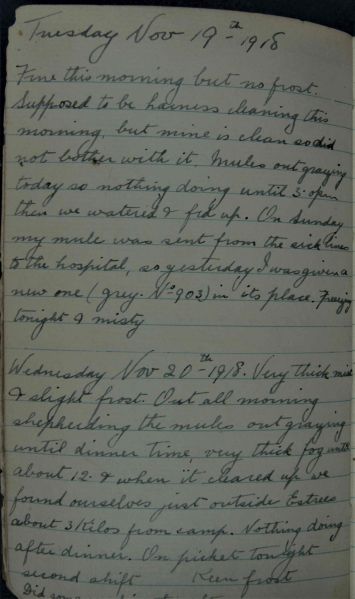 Tuesday Nov 19th 1918
Fine this morning but no frost.
Supposed to be harness cleaning this
morning, but mine is clean so did
not bother with it. Mules out graying
today so nothing doing until 3. open
then we watered & fed up. On Sunday
my mule was sent from the sick lines
to the hospital, so yesterday I was given a
new one (grey. No 903) in its place. Freezing
tonight & misty
Wednesday Nov 20th 1918. Very thick mist
& slight frost. Out all morning
shepherding the mules out graying
until dinner time, very thick fog until
about 12. & when it cleared up we
found ourselves just outside Estrees
about 3 Kilos from camp. Nothing doing
after dinner. On picket tonight
second shift Keen frost
Did